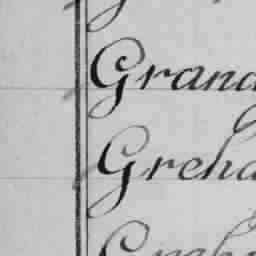 Grand
Greha